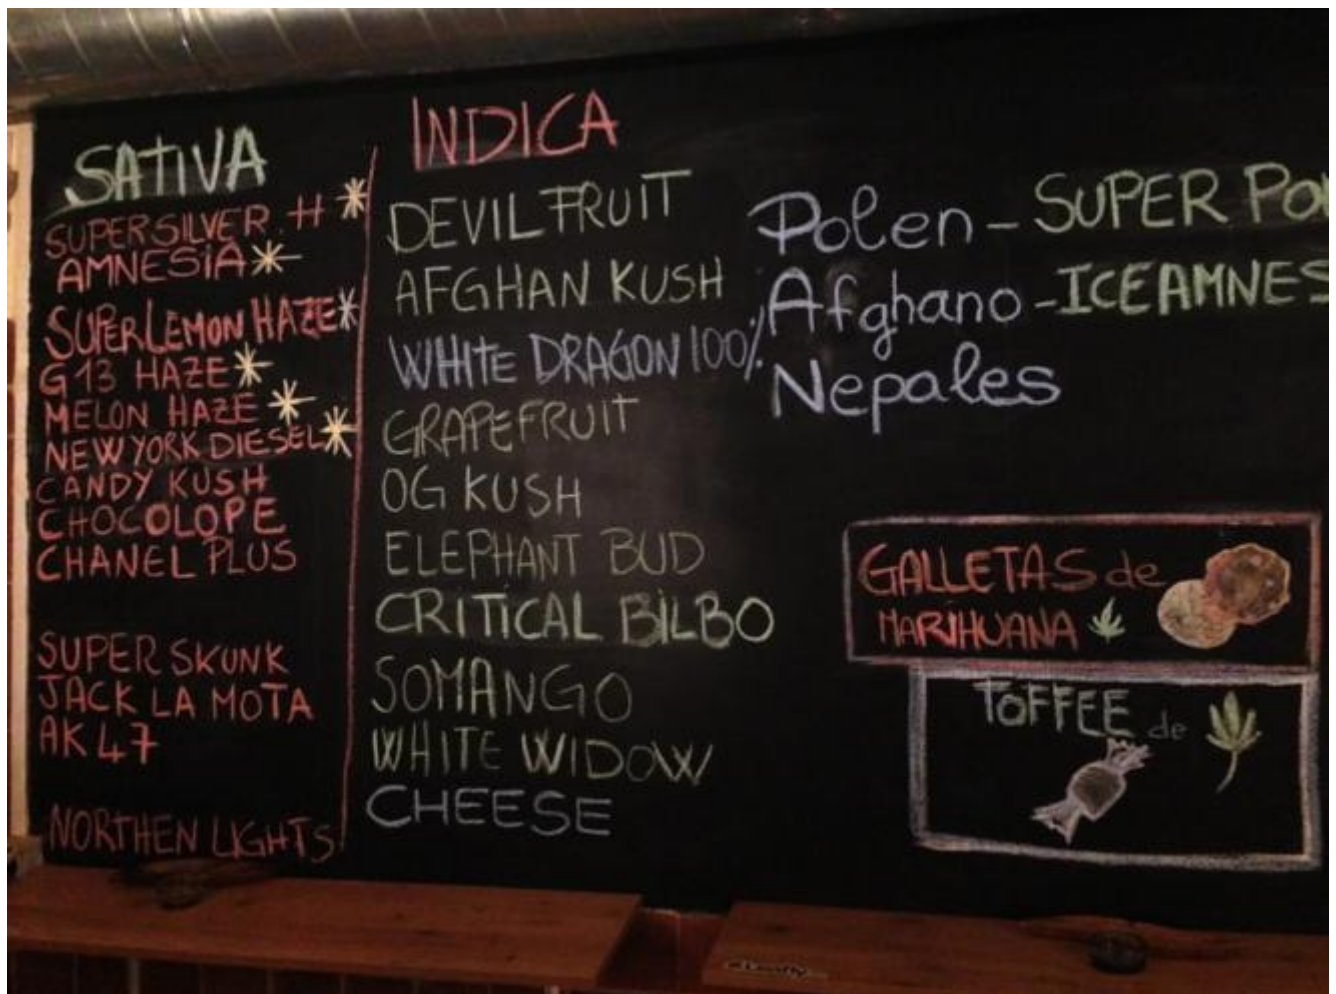 SATIVA
SUPERSILVER.H *
AMNESIA *
SUPERLEMON HAZE *
G13 HAZE *
MELON HAZE *
NEW YORK DIESEL *
CANDY KUSH
CHOCOLOPE
CHANEL PLUS
SUPER SKUNK
JACK LA MOTA
AK 47
NORTHEN LIGHTS
INDICA
DEVIL FRUIT
AFGHAN KUSH
WHITE DRAGON 100%
GRAPEFRUIT
OG KUSH
ELEPHANT BUD
CRITICAL BILBO
SOMANGO
WHITE WIDOW
CHEESE
Polen - SUPER
Afghano - ICE AMNES
Nepales
GALLETAS de
MARIHUANA
TOFFEE de